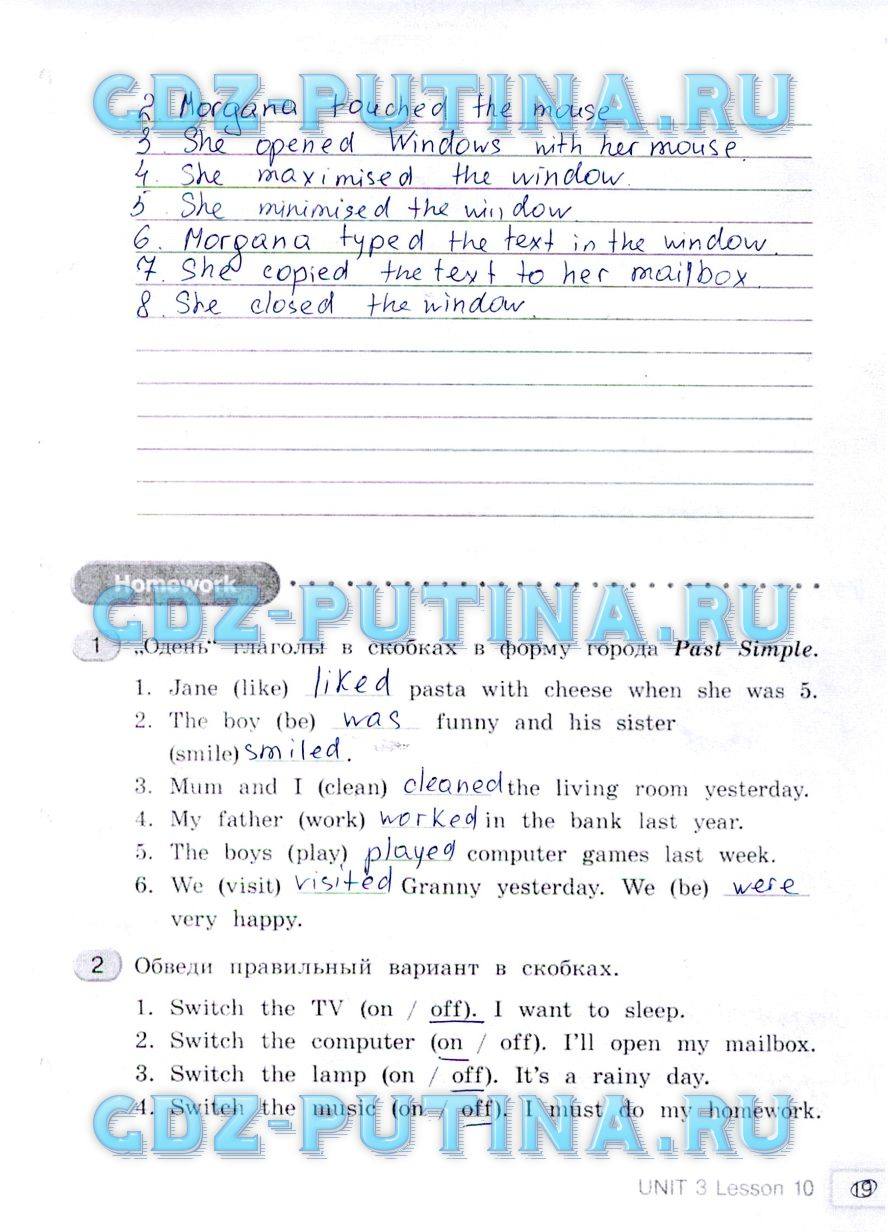 GDZ-PUTINA.RU
2 Morgana touched the mouse
3. She opened Windows with her mouse.
4. She maximised the window.
5 She minimised the window.
6. Morgana typed the text in the window.
7. She copied the text to her mailbox.
8. She closed the window.
Homework
GDZ-PUTINA.RU
1 „Одень“ глаголы в скобках в форму города Past Simple.
1. Jane (like) liked pasta with cheese when she was 5.
2. The boy (be) was funny and his sister
(smile) smiled.
3. Mum and I (clean) cleaned the living room yesterday.
4. My father (work) worked in the bank last year.
5. The boys (play) played computer games last week.
6. We (visit) visited Granny yesterday. We (be) were
very happy.
GDZ-PUTINA.RU
2 Обведи правильный вариант в скобках.
1. Switch the TV (on / off). I want to sleep.
2. Switch the computer (on / off). I'll open my mailbox.
3. Switch the lamp (on / off). It's a rainy day.
4. Switch the music (on / off). I must do my homework.
GDZ-PUTINA.RU
UNIT 3 Lesson 10 19